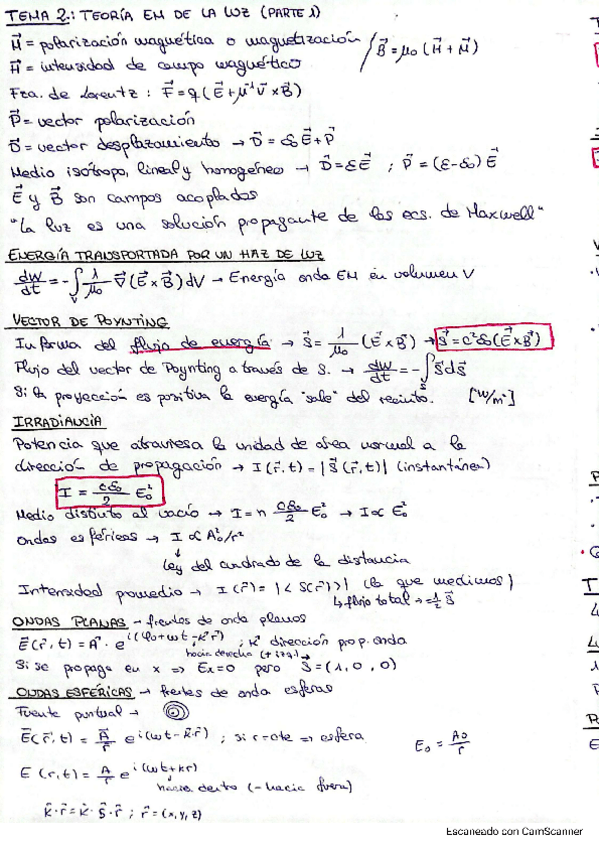 TEMA 2.: TEORÍA EM DE LA LUZ (PARTE 1)
M⃗ = polarización magnética o magnetización / B⃗ = μ₀ (H⃗ + M⃗)
H⃗ = intensidad de campo magnético
Fza. de Lorentz : F⃗ = q (E⃗ + μ⁻¹ v⃗ × B⃗)
P⃗ = vector polarización
D⃗ = vector desplazamiento → D⃗ = ε₀ E⃗ + P⃗
Medio isótropo, lineal y homogéneo → D⃗ = ε E⃗ ; P⃗ = (ε - ε₀) E⃗
E⃗ y B⃗ son campos acoplados
"La luz es una solución propagante de las ecs. de Maxwell"
ENERGÍA TRANSPORTADA POR UN HAZ DE LUZ
dW/dt = - ∫v 1/μ₀ ∇⃗ (E⃗ × B⃗) dV → Energía onda EM en volumen V
VECTOR DE POYNTING
Informa del flujo de energía → S⃗ = 1/μ₀ (E⃗ × B⃗) → S⃗ = c² ε₀ (E⃗ × B⃗)
Flujo del vector de Poynting a través de S. → dW/dt = - ∫s S⃗ ds⃗
Si la proyección es positiva la energía "sale" del recinto. [W/m²]
IRRADIANCIA
Potencia que atraviesa la unidad de área normal a la
dirección de propagación → I (r⃗, t) = | S⃗ (r⃗, t) | (instantánea)
I = cε₀/2 E₀²
Medio distinto al vacío → I = n cε₀/2 E₀² → I ∝ E₀²
Ondas esféricas → I ∝ A₀²/r²
Ley del cuadrado de la distancia
Intensidad promedio → I (r⃗) = | < S(r⃗) > | (la que medimos)
↳ flujo total → = ½ S⃗
ONDAS PLANAS → frentes de onda planos
E⃗ (r⃗, t) = A⃗ · e^i(φ₀ + ωt - k⃗ r⃗) ; k⃗ dirección prop. onda
hacia derecha (+ izq.)
Si se propaga en x => Ex = 0 pero S⃗ = (1, 0, 0)
ONDAS ESFÉRICAS → frentes de onda esferas
Fuente puntual →
E⃗ (r⃗, t) = A⃗/r e^i(ωt - k⃗·r⃗) ; si r = cte => esfera E₀ = A₀/r
E (r, t) = A/r e^i(ωt + kr)
hacia dentro (- hacia fuera)
k⃗ · r⃗ = k · s⃗ · r⃗ ; r⃗ = (x, y, z)
Escaneado con CamScanner